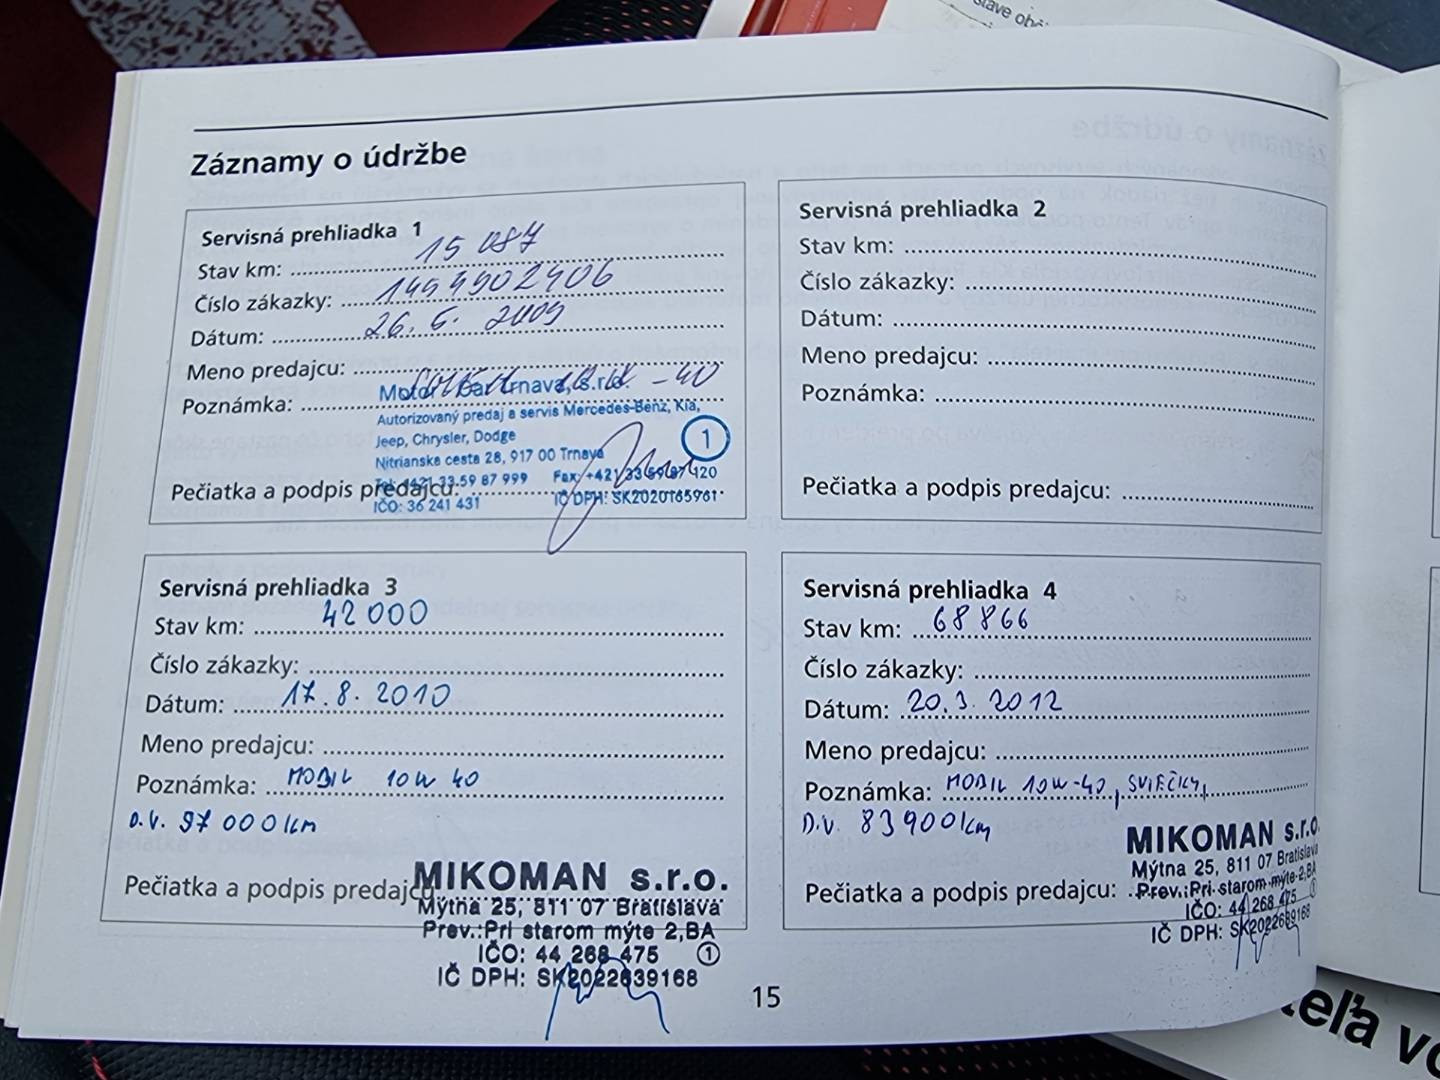 stave
Záznamy o údržbe
Servisná prehliadka 1
Stav km: 15 087
Číslo zákazky: 1494902406
Dátum: 26. 6. 2009
Meno predajcu:
Poznámka: -40
Motor - Car Trnava, s.r.o.
Autorizovaný predaj a servis Mercedes-Benz, Kia,
Jeep, Chrysler, Dodge
1
Nitrianska cesta 28, 917 00 Trnava
Tel: +421 33 59 87 999 Fax: +421 33 59 87 120
Pečiatka a podpis predajcu:
IČO: 36 241 431 IČ DPH: SK2020165961
Servisná prehliadka 2
Stav km:
Číslo zákazky:
Dátum:
Meno predajcu:
Poznámka:
Pečiatka a podpis predajcu:
Servisná prehliadka 3
Stav km: 42 000
Číslo zákazky:
Dátum: 17. 8. 2010
Meno predajcu:
Poznámka: MOBIL 10W 40
D.V. 57 000 km
Pečiatka a podpis predajcu
MIKOMAN s.r.o.
Mýtna 25, 811 07 Bratislava
Prev.:Pri starom mýte 2,BA
IČO: 44 268 475 1
IČ DPH: SK2022639168
Servisná prehliadka 4
Stav km: 68 866
Číslo zákazky:
Dátum: 20. 3. 2012
Meno predajcu:
Poznámka: MOBIL 10W-40, SVIEČKY,
D.V. 83 900 km
Pečiatka a podpis predajcu:
MIKOMAN s.r.o.
Mýtna 25, 811 07 Bratislava
Prev.:Pri starom mýte 2,BA
IČO: 44 268 475 1
IČ DPH: SK2022639168
15